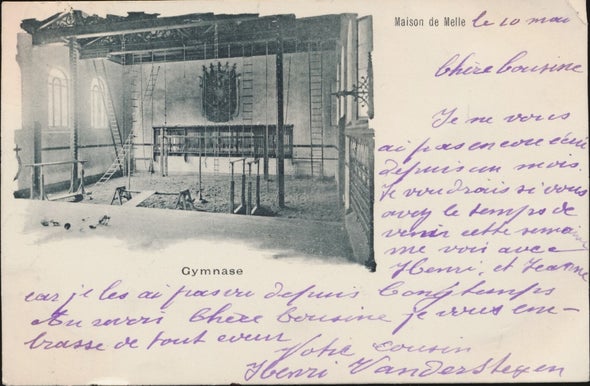 Maison de Melle le 10 mai
Chère Cousine
Je ne vous
ai pas encore écrit
depuis un mois.
Je voudrais si vous
avez le temps de
venir cette semaine
me voir avec
Henri, et Jeanne
Gymnase
car je les ai pas vu depuis longtemps
Au revoir Chère Cousine je vous em-
brasse de tout cœur
Votre cousin
Henri Vandersteyen